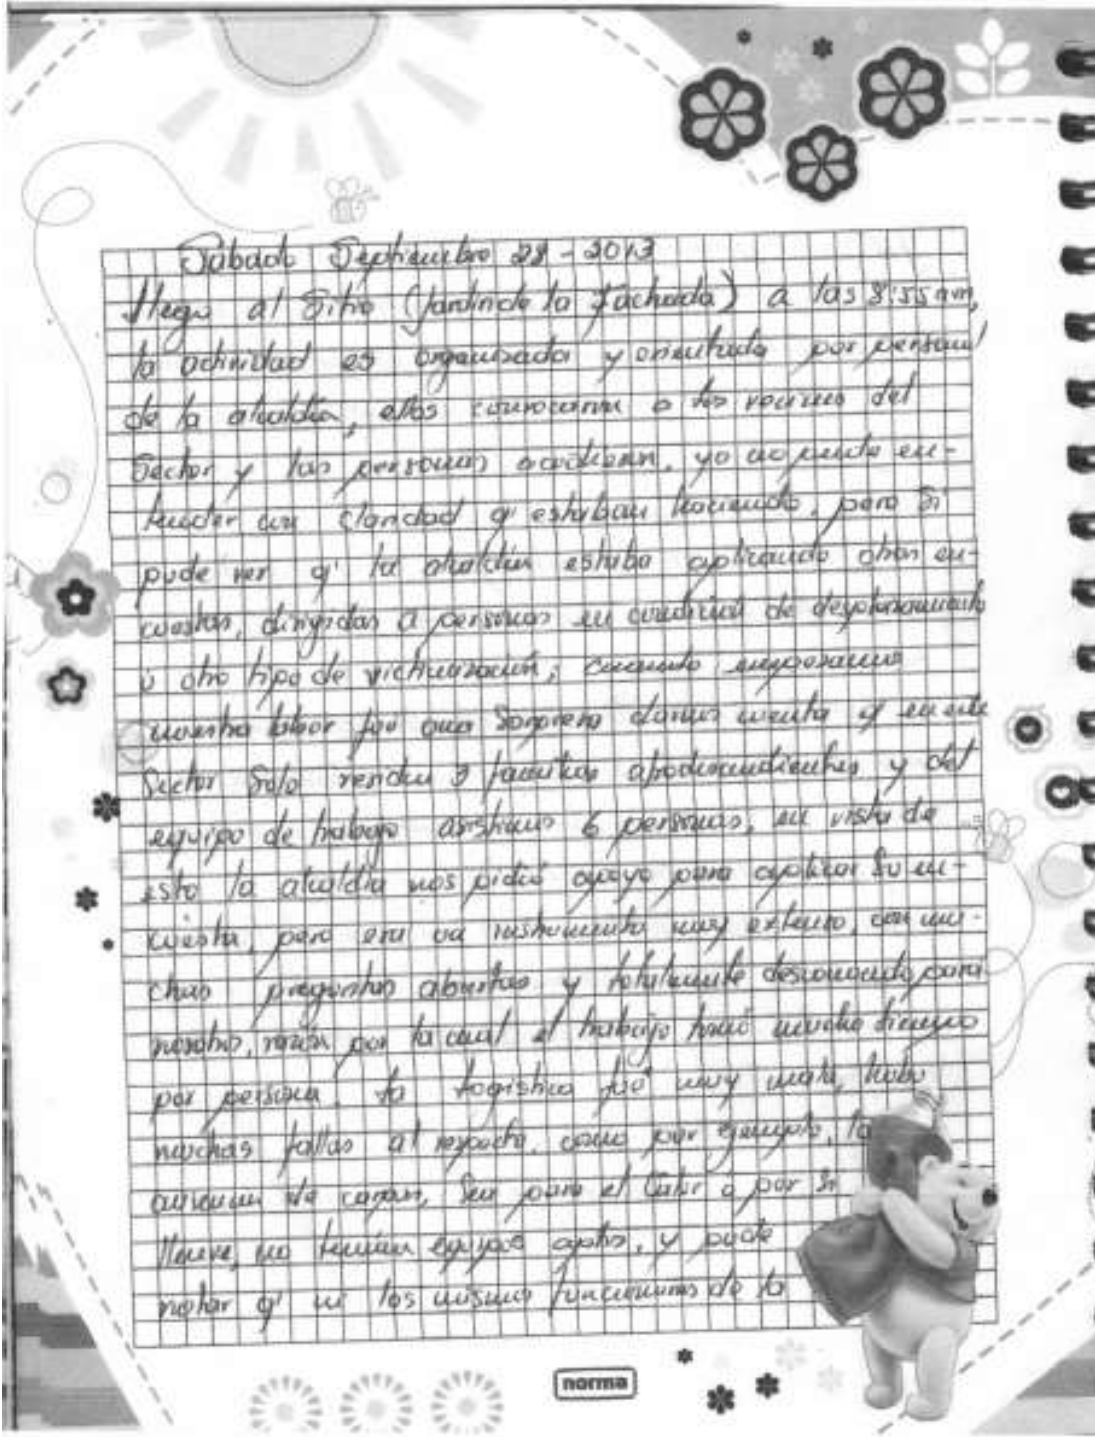 Sábado Septiembre 28 - 2013
Llego al Sitio (Jardin de la Fachada) a las 8:55 am,
la actividad es organizada y orientada por personal
de la alcaldía, ellos convocaron a los vecinos del
Sector y las personas acudieron, yo no pude en-
tender con claridad q' estaban haciendo, pero si
pude ver q' la alcaldía estaba aplicando otras en-
cuestas, dirigidas a personas en condición de desplazamiento
u otro tipo de victimización; cuando empezamos
nuestra labor fué una Sorpresa darnos cuenta q' en este
Sector Solo residen 3 familias afrodescendientes y del
equipo de trabajo asistimos 6 personas, en vista de
esto la alcaldía nos pidió apoyo para aplicar Su en-
cuesta, pero era un instrumento muy extenso, con mu-
chas preguntas abiertas y totalmente desconocido para
nosotros, razón por la cual el trabajo tomó mucho tiempo
por persona. la logística fué muy mala, hubo
muchas fallas al respecto, como por ejemplo, la
ausencia de carpas, Sea para el Calor o por Si
llueve, no tenían equipos aptos, y pude
notar q' ni los mismos funcionarios de la
norma